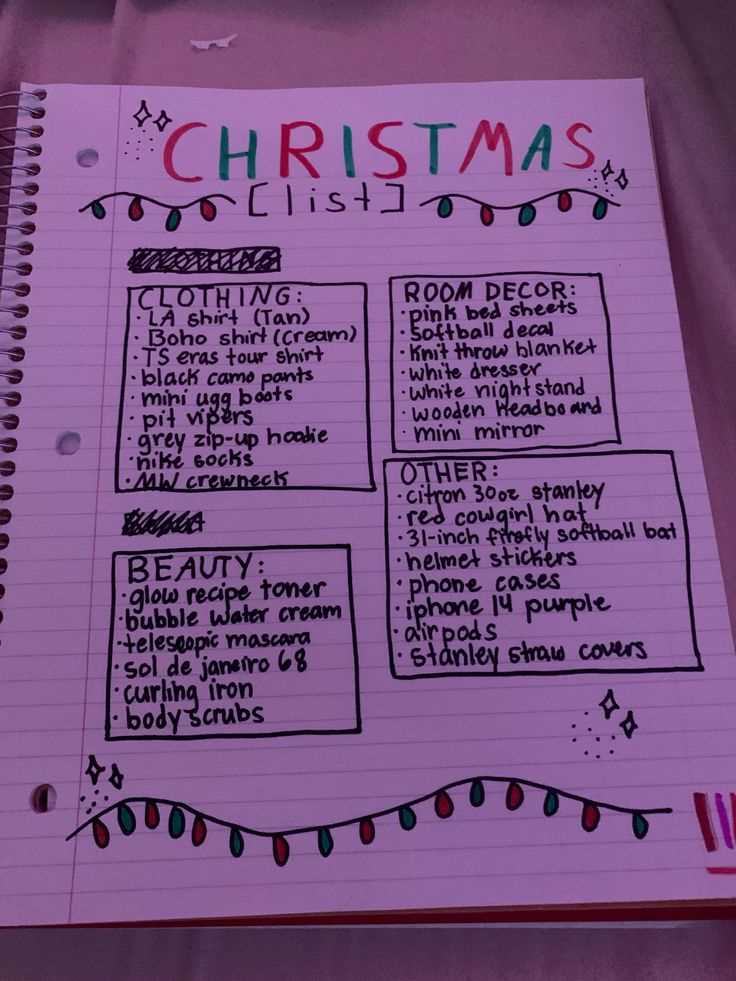 CHRISTMAS
[list]
CLOTHING:
· LA shirt (Tan)
· Boho shirt (cream)
· TS eras tour shirt
· black camo pants
· mini ugg boots
· pit vipers
· grey zip-up hoodie
· nike socks
· MW crewneck
ROOM DECOR:
· pink bed sheets
· softball decal
· knit throw blanket
· white dresser
· white nightstand
· wooden headboard
· mini mirror
BEAUTY:
· glow recipe toner
· bubble water cream
· telescopic mascara
· sol de janeiro 68
· curling iron
· body scrubs
OTHER:
· citron 30oz stanley
· red cowgirl hat
· 31-inch firefly softball bat
· helmet stickers
· phone cases
· iphone 14 purple
· airpods
· stanley straw covers